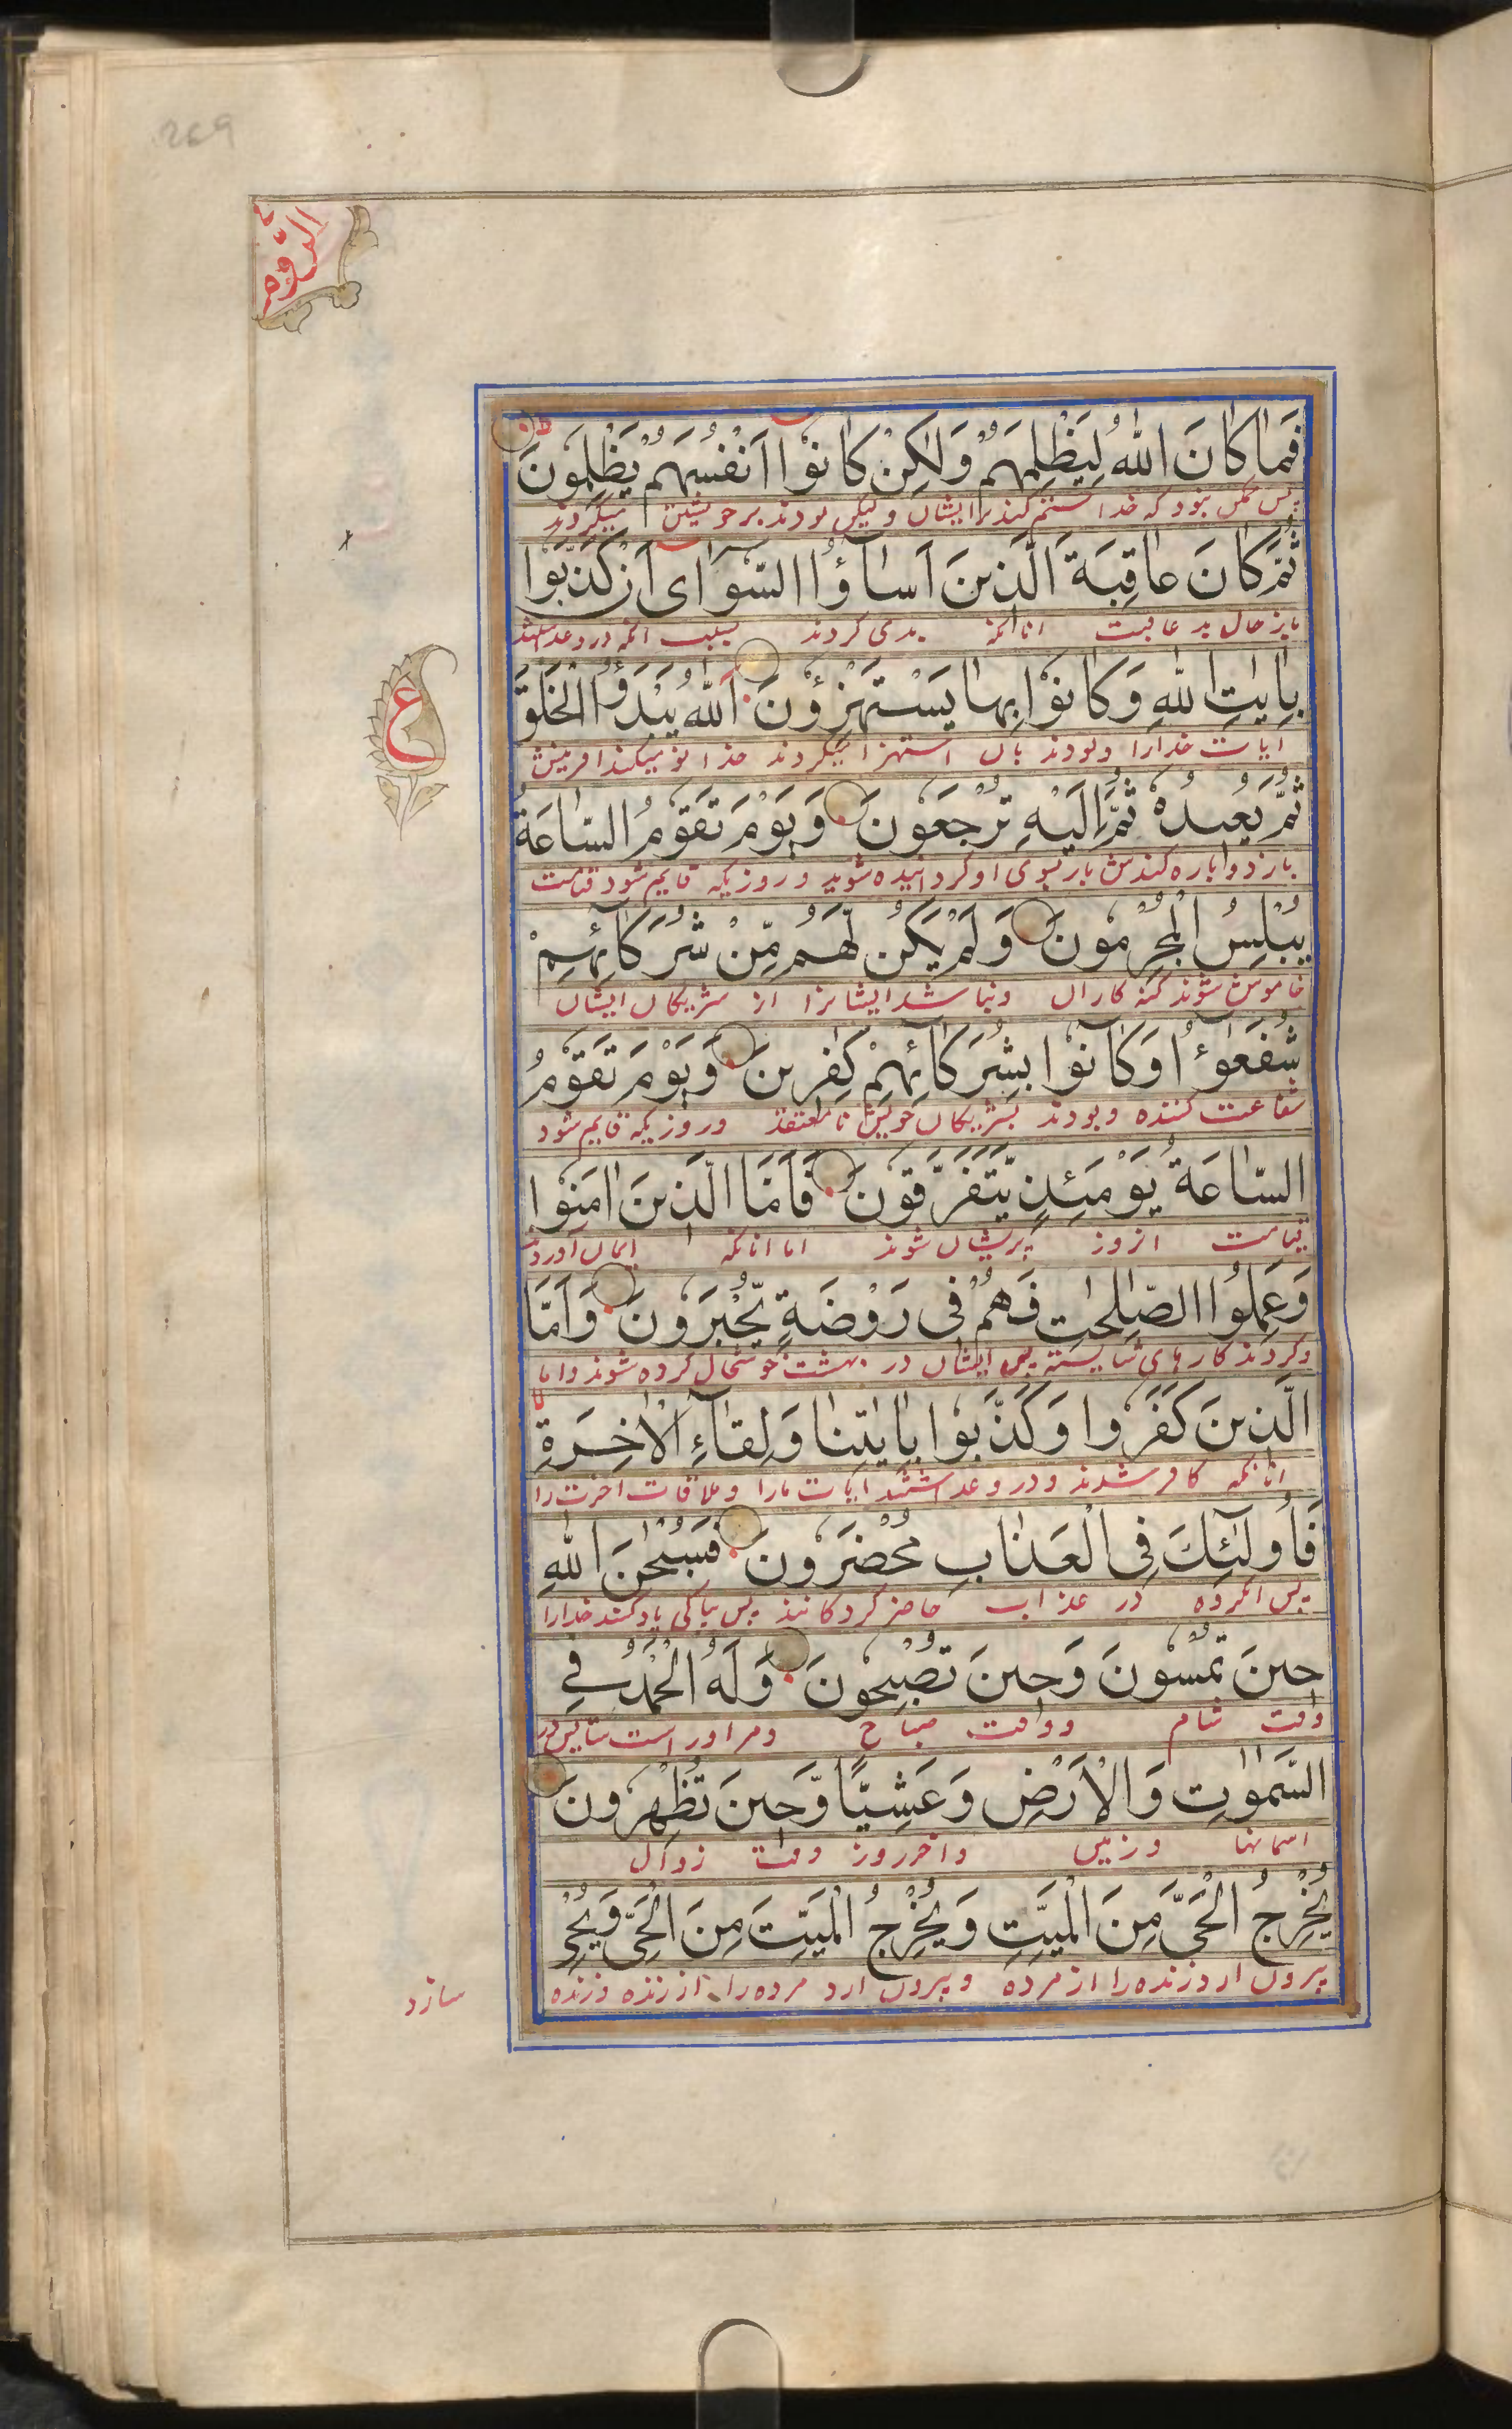 269
الرّوم
فَمَا كَانَ اللّٰهُ لِيَظْلِمَهُمْ وَلٰكِنْ كَانُوْا اَنْفُسَهُمْ يَظْلِمُوْنَ
پس ممکن نبود که خدا ستم کند بر ایشان ولیکن بودند بر خویشتن میکردند
ثُمَّ كَانَ عَاقِبَةَ الَّذِينَ اَسَاؤُا السُّوْاٰى اَنْ كَذَّبُوْا
باز حال بد عاقبت انانکه بدی کردند بسبب انکه دروغ
بِاٰيٰتِ اللّٰهِ وَكَانُوْا بِهَا يَسْتَهْزِؤُنَ اَللّٰهُ يَبْدَؤُا الْخَلْقَ
ع
ایات خدارا وبودند بان استهزا میکردند خدا نو میکند افرینش
ثُمَّ يُعِيدُهُ ثُمَّ اِلَيْهِ تُرْجَعُوْنَ وَيَوْمَ تَقُوْمُ السَّاعَةُ
باز دوباره کندش باز بسوی او گردانیده شوید و روزیکه قایم شود قیامت
يُبْلِسُ الْمُجْرِمُوْنَ وَلَمْ يَكُنْ لَّهُمْ مِّنْ شُرَكَائِهِمْ
خاموش شوند گنه کاران ونباشد ایشانرا از شریکان ایشان
شُفَعٰٓؤُا وَكَانُوْا بِشُرَكَائِهِمْ كٰفِرِينَ وَيَوْمَ تَقُوْمُ
شفاعت کننده وبودند بشریکان خویش نامعتقد وروزیکه قایم شود
السَّاعَةُ يَوْمَئِذٍ يَّتَفَرَّقُوْنَ فَاَمَّا الَّذِينَ اٰمَنُوْا
قیامت انروز پریشان شوند اما انانکه ایمان اوردند
وَعَمِلُوا الصّٰلِحٰتِ فَهُمْ فِى رَوْضَةٍ يُّحْبَرُوْنَ وَاَمَّا
وکردند کارهای شایسته پس ایشان در بهشت خوشحال کرده شوند واما
الَّذِينَ كَفَرُوْا وَكَذَّبُوْا بِاٰيٰتِنَا وَلِقَآءِ الْاٰخِرَةِ
انانکه کافر شدند ودروغ داشتند ایات مارا وملاقات اخرت را
فَاُولٰٓئِكَ فِى الْعَذَابِ مُحْضَرُوْنَ فَسُبْحٰنَ اللّٰهِ
پس انگروه در عذاب حاضر کردگانند پس بپاکی یاد کنید خدارا
حِينَ تُمْسُوْنَ وَحِينَ تُصْبِحُوْنَ وَلَهُ الْحَمْدُ فِي
وقت شام ووقت صباح ومر اوراست ستایش در
السَّمٰوٰتِ وَالْاَرْضِ وَعَشِيًّا وَّحِينَ تُظْهِرُوْنَ
اسمانها وزمین واخر روز وقت زوال
يُخْرِجُ الْحَىَّ مِنَ الْمَيِّتِ وَيُخْرِجُ الْمَيِّتَ مِنَ الْحَىِّ وَيُحْىِ
بیرون ارد زنده را از مرده وبیرون ارد مرده را از زنده وزنده
سازد